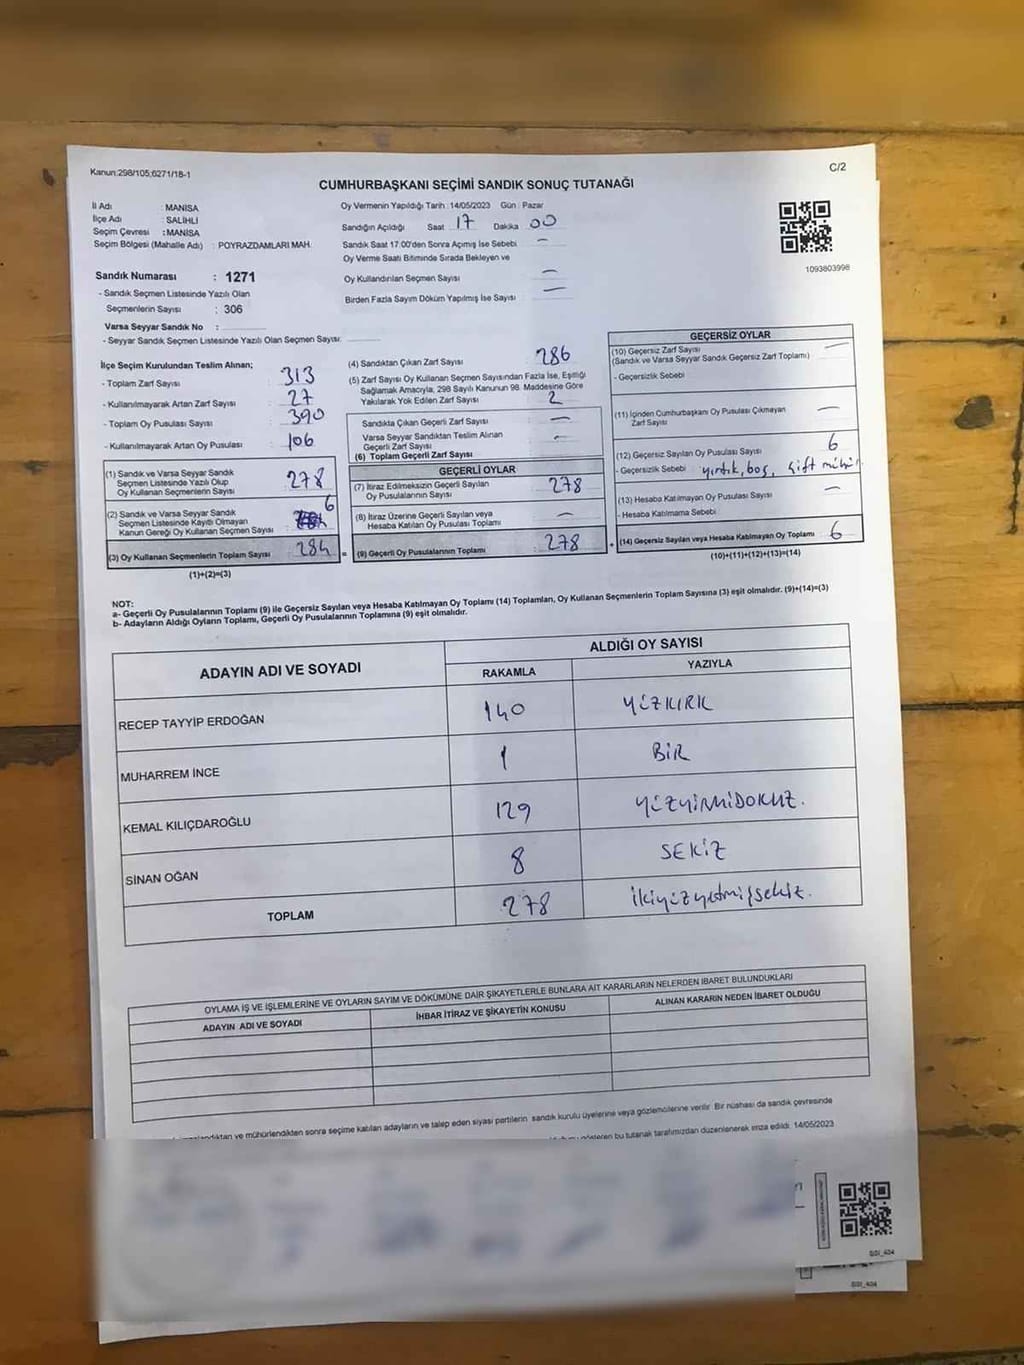 Kanun:298/105;6271/18-1
C/2
CUMHURBAŞKANI SEÇİMİ SANDIK SONUÇ TUTANAĞI
İl Adı : MANİSA
İlçe Adı : SALİHLİ
Seçim Çevresi : MANİSA
Seçim Bölgesi (Mahalle Adı) : POYRAZDAMLARI MAH.
Sandık Numarası : 1271
- Sandık Seçmen Listesinde Yazılı Olan
Seçmenlerin Sayısı : 306
Varsa Seyyar Sandık No :
- Seyyar Sandık Seçmen Listesinde Yazılı Olan Seçmen Sayısı:
Oy Vermenin Yapıldığı Tarih : 14/05/2023 Gün : Pazar
Sandığın Açıldığı Saat 17 Dakika 00
Sandık Saat 17:00'den Sonra Açmış İse Sebebi —
Oy Verme Saati Bitiminde Sırada Bekleyen ve
Oy Kullandırılan Seçmen Sayısı —
Birden Fazla Sayım Döküm Yapılmış İse Sayısı —
1093803998
İlçe Seçim Kurulundan Teslim Alınan;
- Toplam Zarf Sayısı : 313
- Kullanılmayarak Artan Zarf Sayısı : 27
- Toplam Oy Pusulası Sayısı : 390
- Kullanılmayarak Artan Oy Pusulası : 106
(1) Sandık ve Varsa Seyyar Sandık
Seçmen Listesinde Yazılı Olup
Oy Kullanan Seçmenlerin Sayısı 278
(2) Sandık ve Varsa Seyyar Sandık
Seçmen Listesinde Kayıtlı Olmayan
Kanun Gereği Oy Kullanan Seçmen Sayısı 6
(3) Oy Kullanan Seçmenlerin Toplam Sayısı 284 =
(1)+(2)=(3)
(4) Sandıktan Çıkan Zarf Sayısı 286
(5) Zarf Sayısı Oy Kullanan Seçmen Sayısından Fazla İse, Eşitliği
Sağlamak Amacıyla, 298 Sayılı Kanunun 98. Maddesine Göre
Yakılarak Yok Edilen Zarf Sayısı 2
Sandıkta Çıkan Geçerli Zarf Sayısı —
Varsa Seyyar Sandıktan Teslim Alınan
Geçerli Zarf Sayısı —
(6) Toplam Geçerli Zarf Sayısı
GEÇERLİ OYLAR
(7) İtiraz Edilmeksizin Geçerli Sayılan
Oy Pusulalarının Sayısı 278
(8) İtiraz Üzerine Geçerli Sayılan veya
Hesaba Katılan Oy Pusulası Toplamı —
(9) Geçerli Oy Pusulalarının Toplamı 278 +
GEÇERSİZ OYLAR
(10) Geçersiz Zarf Sayısı —
(Sandık ve Varsa Seyyar Sandık Geçersiz Zarf Toplamı)
- Geçersizlik Sebebi
(11) İçinden Cumhurbaşkanı Oy Pusulası Çıkmayan
Zarf Sayısı —
(12) Geçersiz Sayılan Oy Pusulası Sayısı 6
- Geçersizlik Sebebi yırtık, boş, çift mühür
(13) Hesaba Katılmayan Oy Pusulası Sayısı —
- Hesaba Katılmama Sebebi
(14) Geçersiz Sayılan veya Hesaba Katılmayan Oy Toplamı 6
(10)+(11)+(12)+(13)=(14)
NOT:
a- Geçerli Oy Pusulalarının Toplamı (9) ile Geçersiz Sayılan veya Hesaba Katılmayan Oy Toplamı (14) Toplamları, Oy Kullanan Seçmenlerin Toplam Sayısına (3) eşit olmalıdır. (9)+(14)=(3)
b- Adayların Aldığı Oyların Toplamı, Geçerli Oy Pusulalarının Toplamına (9) eşit olmalıdır.
ADAYIN ADI VE SOYADI
ALDIĞI OY SAYISI
RAKAMLA YAZIYLA
RECEP TAYYİP ERDOĞAN 140 YÜZKIRK
MUHARREM İNCE 1 BİR
KEMAL KILIÇDAROĞLU 129 YÜZYİRMİDOKUZ.
SİNAN OĞAN 8 SEKİZ
TOPLAM 278 ikiyüzyetmişsekiz.
OYLAMA İŞ VE İŞLEMLERİNE VE OYLARIN SAYIM VE DÖKÜMÜNE DAİR ŞİKAYETLERLE BUNLARA AİT KARARLARIN NELERDEN İBARET BULUNDUKLARI
ADAYIN ADI VE SOYADI İHBAR İTİRAZ VE ŞİKAYETİN KONUSU ALINAN KARARIN NEDEN İBARET OLDUĞU
ve mühürlendikten sonra seçime katılan adayların ve talep eden siyasi partilerin sandık kurulu üyelerine veya gözlemcilerine verilir. Bir nüshası da sandık çevresinde
gösteren bu tutanak tarafımızdan düzenlenerek imza edildi. 14/05/2023
SGI_404
SGI_404